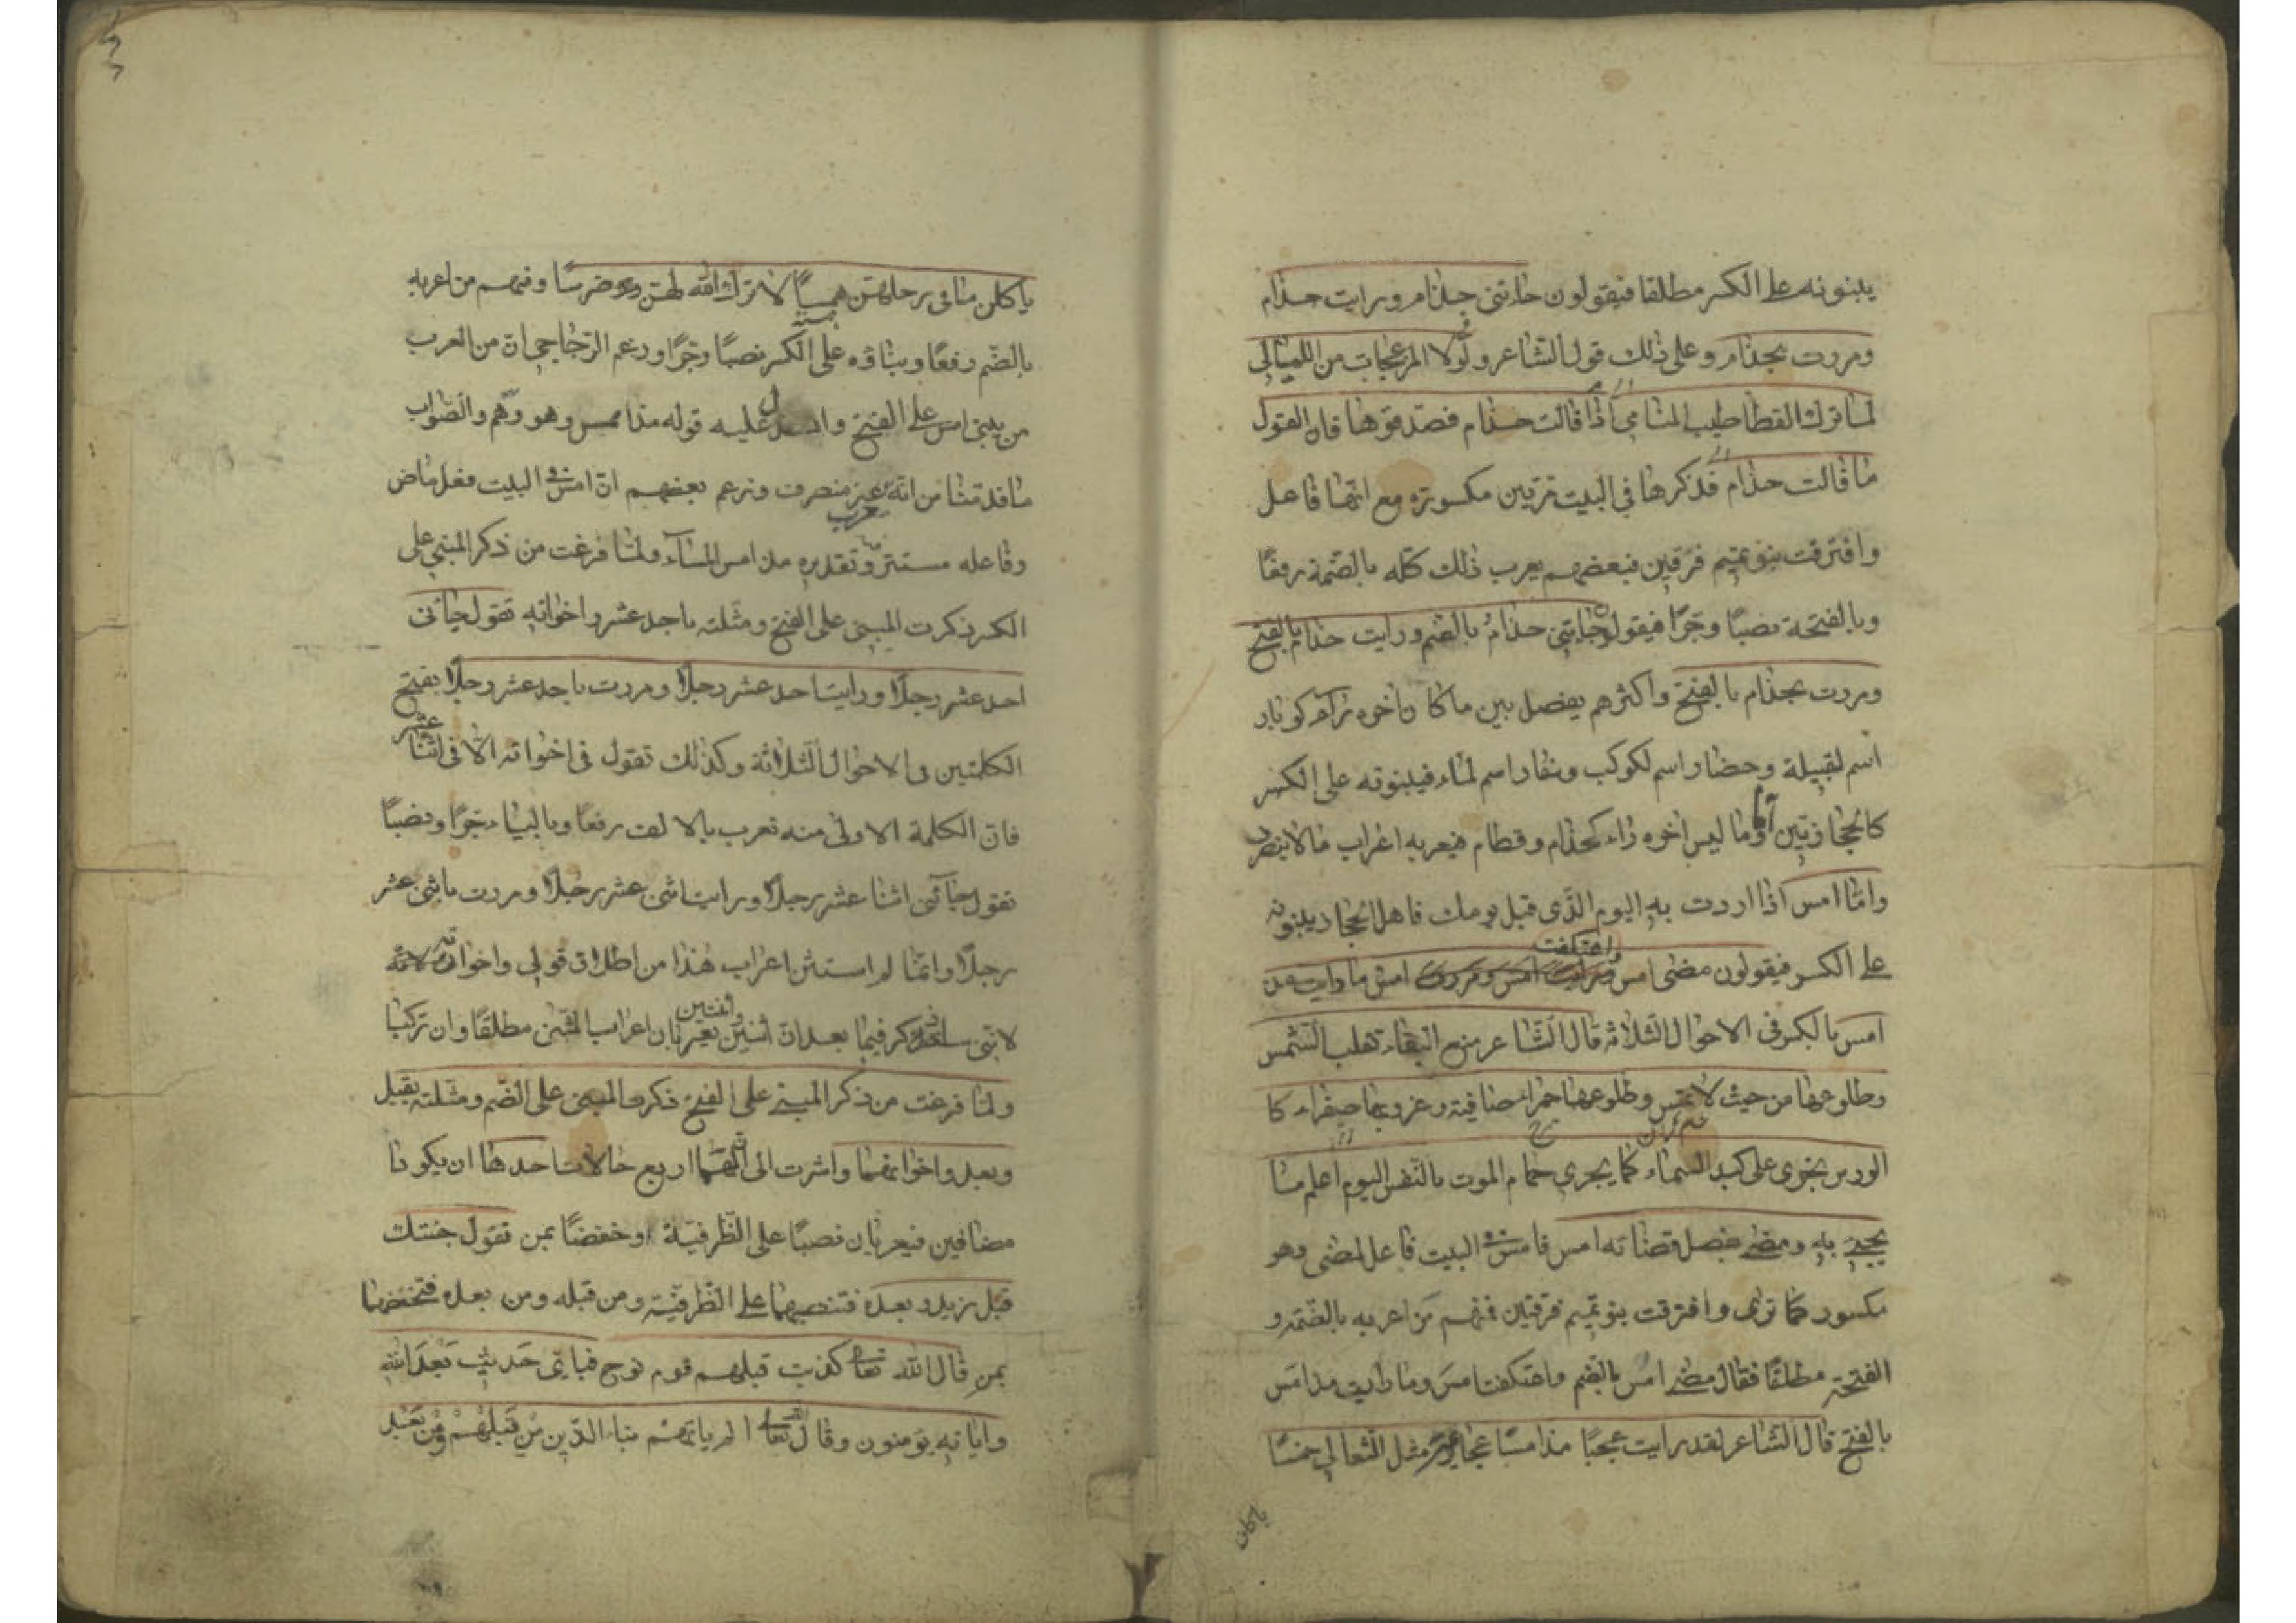 يبنونه على الكسر مطلقا فيقولون جاءتني حذام ورايت حذام
ومررت بحذام وعلى ذلك قول الشاعر ولولا المزعجات من الليالي
لما ترك القطا طيب المنام اذا قالت حذام فصدقوها فان القول
ما قالت حذام فذكرها في البيت مرتين مكسورة مع انها فاعل
وافترقت بنو تميم فرقتين فبعضهم يعرب ذلك كله بالضمة رفعًا
وبالفتحة نصبًا وجرًا فيقول جاءتني حذامُ بالضم ورايت حذام بالفتح
ومررت بحذام بالفتح واكثرهم يفصل بين ما كان اخره راء كوبار
اسم لقبيلة وحضار اسم لكوكب وسفار اسم لماء فيبنونه على الكسر
كالحجازيين وما ليس اخره راء كحذام وقطام فيعربه اعراب ما لا ينصرف
واما امس اذا اردت به اليوم الذي قبل يومك فاهل الحجاز يبنونه
على الكسر فيقولون مضى امس واعتكفت امس ما رايت مذ
امس بالكسر في الاحوال الثلاثة قال الشاعر منع البقاء تقلب الشمس
وطلوعها من حيث لا تمسي وطلوعها حمراء صافية وغروبها صفراء كا
الورس تجري على كبد السماء كما يجري حمام الموت بالنفس اليوم اعلم ما
يجيئ به ومضى بفصل قضائه امس فامس في البيت فاعل لمضى وهو
مكسور كما ترى وافترقت بنو تميم فرقتين فمنهم من اعربه بالضمة و
الفتحة مطلقًا فقال مضى امسُ بالضم واعتكفت امسَ وما رايت مذ امسَ
بالفتح قال الشاعر لقد رايت عجبًا مذ امسًا عجايزًا مثل الثعالي خمسًا
ياكلن
ياكلن ما في رحلهن همسًا لا ترك الله لهن ضرسًا ومنهم من اعربه
بالضم رفعًا وبناؤه على الكسر نصبًا وجرًا وزعم الزجاجي ان من العرب
من يبني امس على الفتح واستدل عليه قوله مذ امس وهو وهم والصواب
ما قدمنا من انه معرب غير منصرف وزعم بعضهم ان امس في البيت فعل ماض
وفاعله مستتر وتقديره مذ امس المساء ولما فرغت من ذكر المبني على
الكسر ذكرت المبني على الفتح ومثلته باحد عشر واخواته تقول جاءني
احد عشر رجلًا ورايت احد عشر رجلًا ومررت باحد عشر رجلًا بفتح
الكلمتين في الاحوال الثلاثة وكذلك تقول في اخواته الا في اثنا عشر
فان الكلمة الاولى منه تعرب بالالف رفعًا وبالياء جرًا ونصبًا
تقول جاءني اثنا عشر رجلًا ورايت اثني عشر رجلًا ومررت باثني عشر
رجلًا وانما لم استثن اعراب هذا من اطلاق قولي واخواته لانه
لانني ساذكر فيما بعد ان اثنين واثنتين يعربان اعراب المثنى مطلقًا وان تركبا
ولما فرغت من ذكر المبني على الفتح ذكرت المبني على الضم ومثلته بقبل
وبعد واخواتهما واشرت الى ان لهما اربع حالات احدها ان يكونا
مضافين فيعربان نصبًا على الظرفية او خفضًا بمن تقول جئتك
قبل زيد وبعده فتنصبهما على الظرفية ومن قبله ومن بعده فتخفضهما
بمن قال الله تعالى كذبت قبلهم قوم نوح فباي حديث بَعْدَ الله
واياته يؤمنون وقال الله تعالى الم ياتهم نباء الذين من قَبْلِهِمْ ومن بَعْد